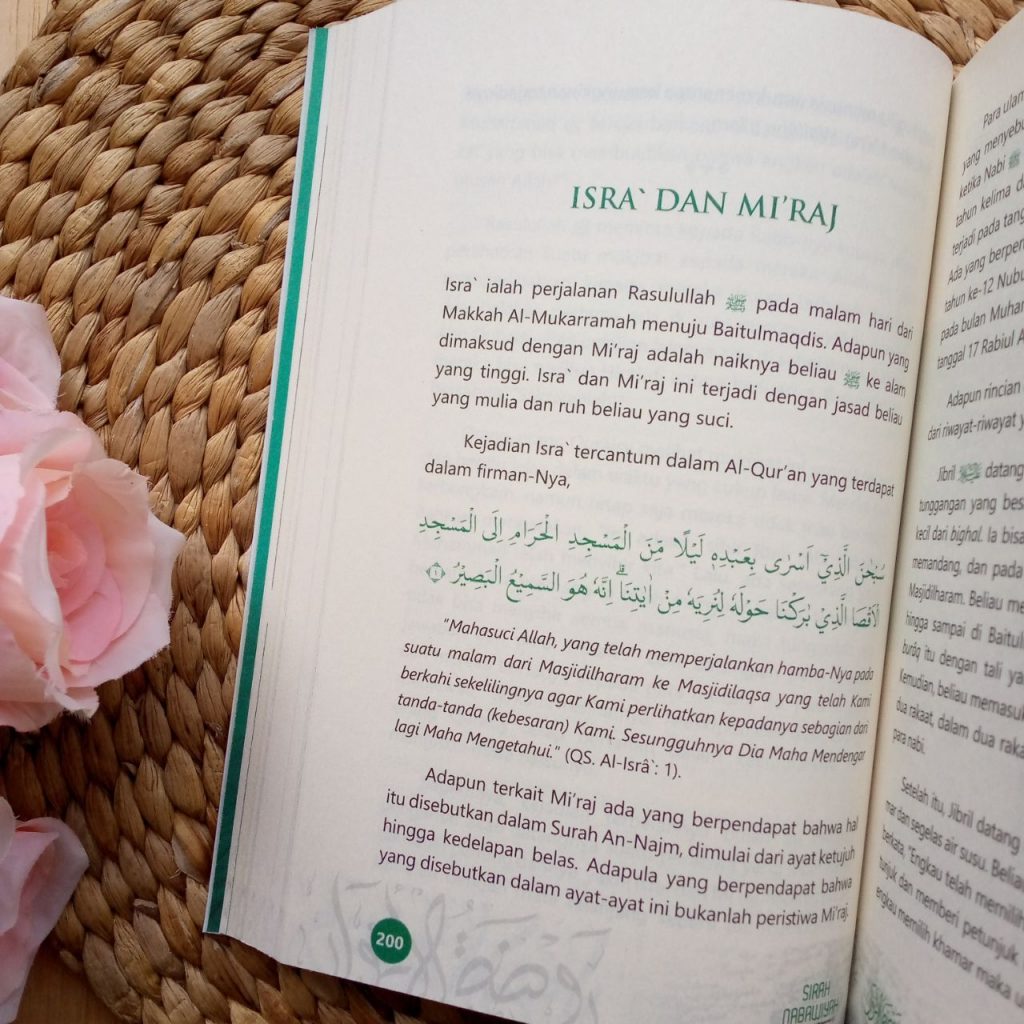 ISRA` DAN MI'RAJ
Isra` ialah perjalanan Rasulullah ﷺ pada malam hari dari
Makkah Al-Mukarramah menuju Baitulmaqdis. Adapun yang
dimaksud dengan Mi'raj adalah naiknya beliau ﷺ ke alam
yang tinggi. Isra` dan Mi'raj ini terjadi dengan jasad beliau
yang mulia dan ruh beliau yang suci.
Kejadian Isra` tercantum dalam Al-Qur'an yang terdapat
dalam firman-Nya,
سُبْحٰنَ الَّذِيْٓ اَسْرٰى بِعَبْدِهٖ لَيْلًا مِّنَ الْمَسْجِدِ الْحَرَامِ اِلَى الْمَسْجِدِ
الْاَقْصَا الَّذِيْ بٰرَكْنَا حَوْلَهٗ لِنُرِيَهٗ مِنْ اٰيٰتِنَاۗ اِنَّهٗ هُوَ السَّمِيْعُ الْبَصِيْرُ ١
"Mahasuci Allah, yang telah memperjalankan hamba-Nya pada
suatu malam dari Masjidilharam ke Masjidilaqsa yang telah Kami
berkahi sekelilingnya agar Kami perlihatkan kepadanya sebagian dari
tanda-tanda (kebesaran) Kami. Sesungguhnya Dia Maha Mendengar
lagi Maha Mengetahui." (QS. Al-Isrâ`: 1).
Adapun terkait Mi'raj ada yang berpendapat bahwa hal
itu disebutkan dalam Surah An-Najm, dimulai dari ayat ketujuh
hingga kedelapan belas. Adapula yang berpendapat bahwa
yang disebutkan dalam ayat-ayat ini bukanlah peristiwa Mi'raj.
200
SIRAH
NABAWIYAH
Para ulam
yang menyebu
ketika Nabi ﷺ
tahun kelima d
terjadi pada tang
Ada yang berpen
tahun ke-12 Nubu
pada bulan Muhar
tanggal 17 Rabiul A
Adapun rincian
dari riwayat-riwayat y
Jibril datang
tunggangan yang bes
kecil dari bighal. Ia bisa
memandang, dan pada
Masjidilharam. Beliau me
hingga sampai di Baitul
burâq itu dengan tali ya
Kemudian, beliau memasuk
dua rakaat, dalam dua raka
para nabi.
Setelah itu, Jibril datang
mar dan segelas air susu. Beliau
berkata, "Engkau telah memilih
tunjuk dan memberi petunjuk
engkau memilih khamar maka u